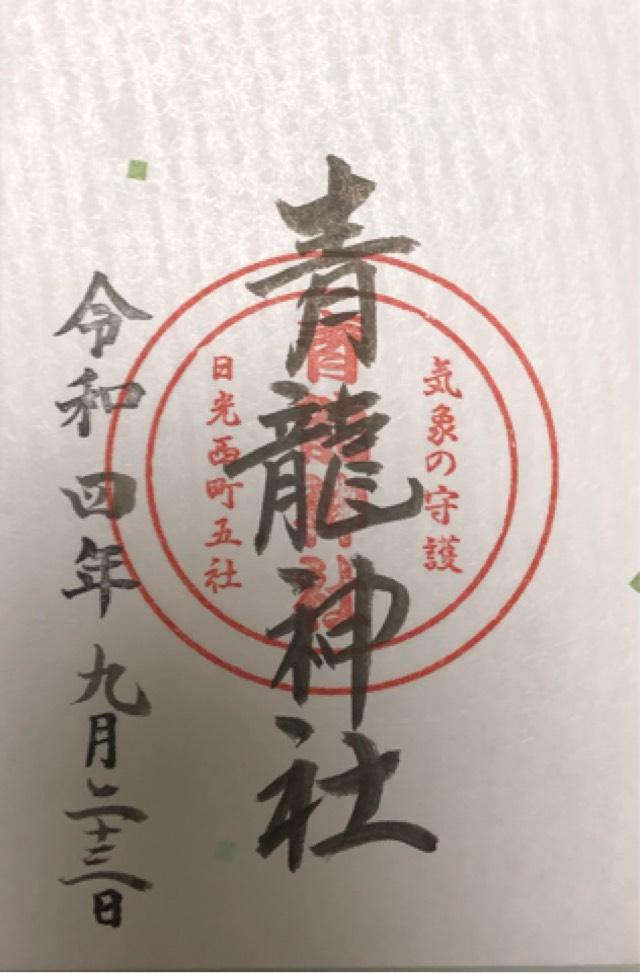 気象の守護
青龍神社
青龍神社
日光西町五社
令和四年九月二十三日